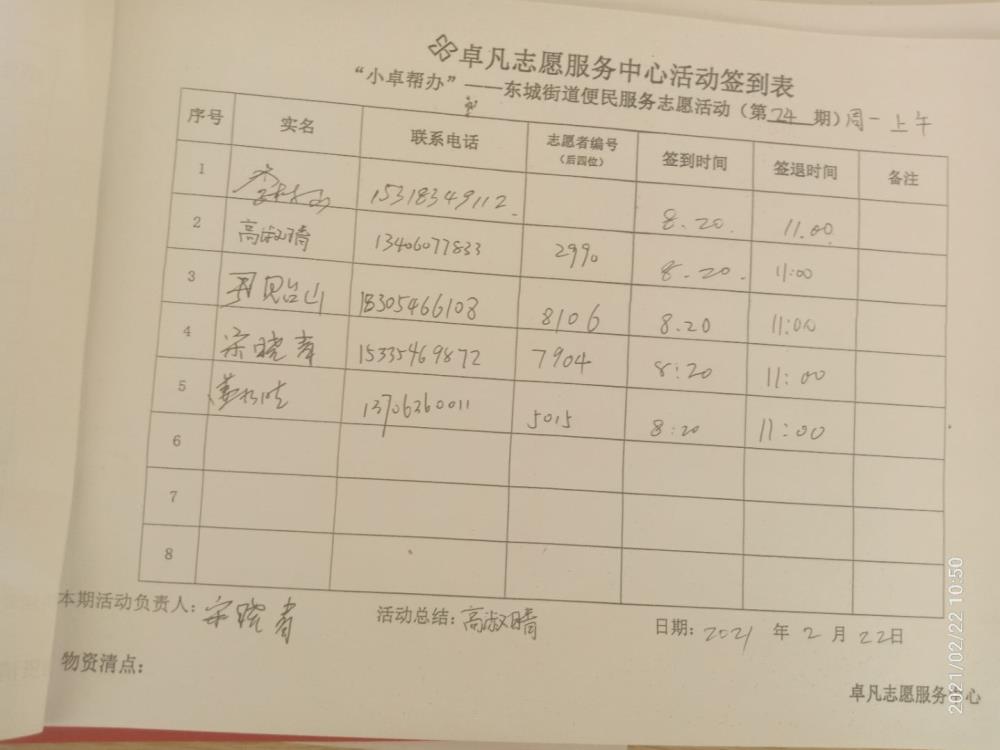 卓凡志愿服务中心活动签到表
“小卓帮办”——东城街道便民服务志愿活动（第24期）周一上午
序号 实名 联系电话 志愿者编号（后四位） 签到时间 签退时间 备注
1 15318349112. 8.20. 11.00
2 高淑晴 13406077833 2990 8.20. 11:00
3 18305466108 8106 8.20 11:00
4 宋晓青 15335469872 7904 8:20 11:00
5 13706360011 5015 8:20 11:00
6
7
8
本期活动负责人：宋晓青 活动总结：高淑晴 日期：2021年2月22日
物资清点：
卓凡志愿服务中心
2021/02/22 10:50